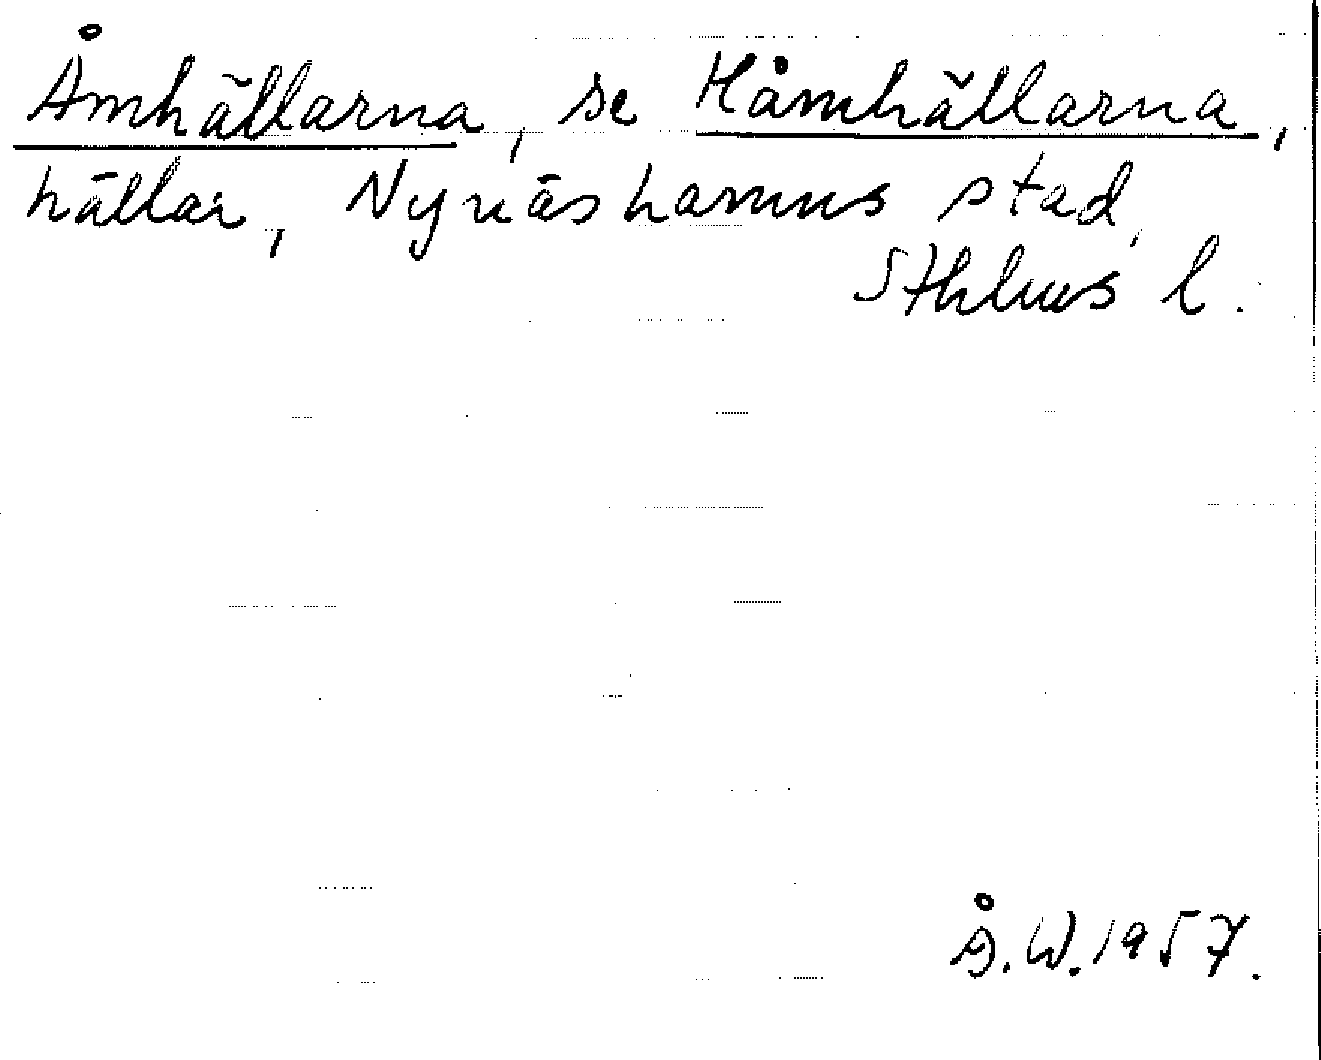 Åmhällarna, se Håmhällarna,
hällar, Nynäshamns stad,
Sthlms l.
Å.W. 1957.